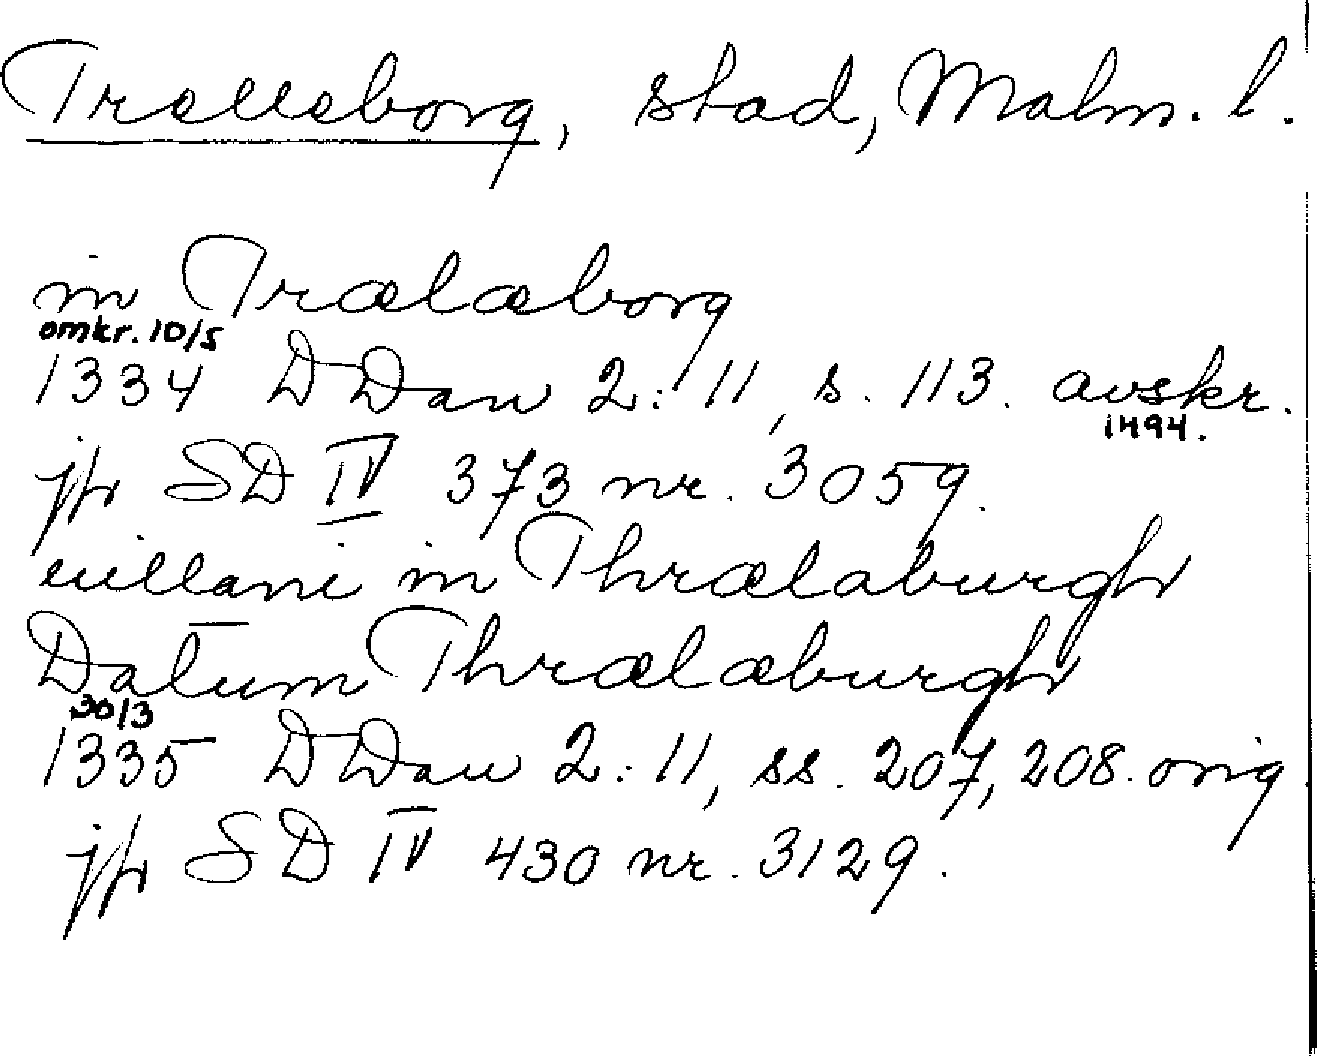 Trelleborg, stad, Malm. l.
in Trælæborg
omkr. 10/5
1334 DDan 2:11, s. 113. avskr.
1494.
jfr SD IV 373 nr. 3059.
uillani in Thrælaburgh
Datum Thrælæburgh
30/3
1335 DDan 2:11, ss. 207, 208. orig.
jfr SD IV 430 nr. 3129.